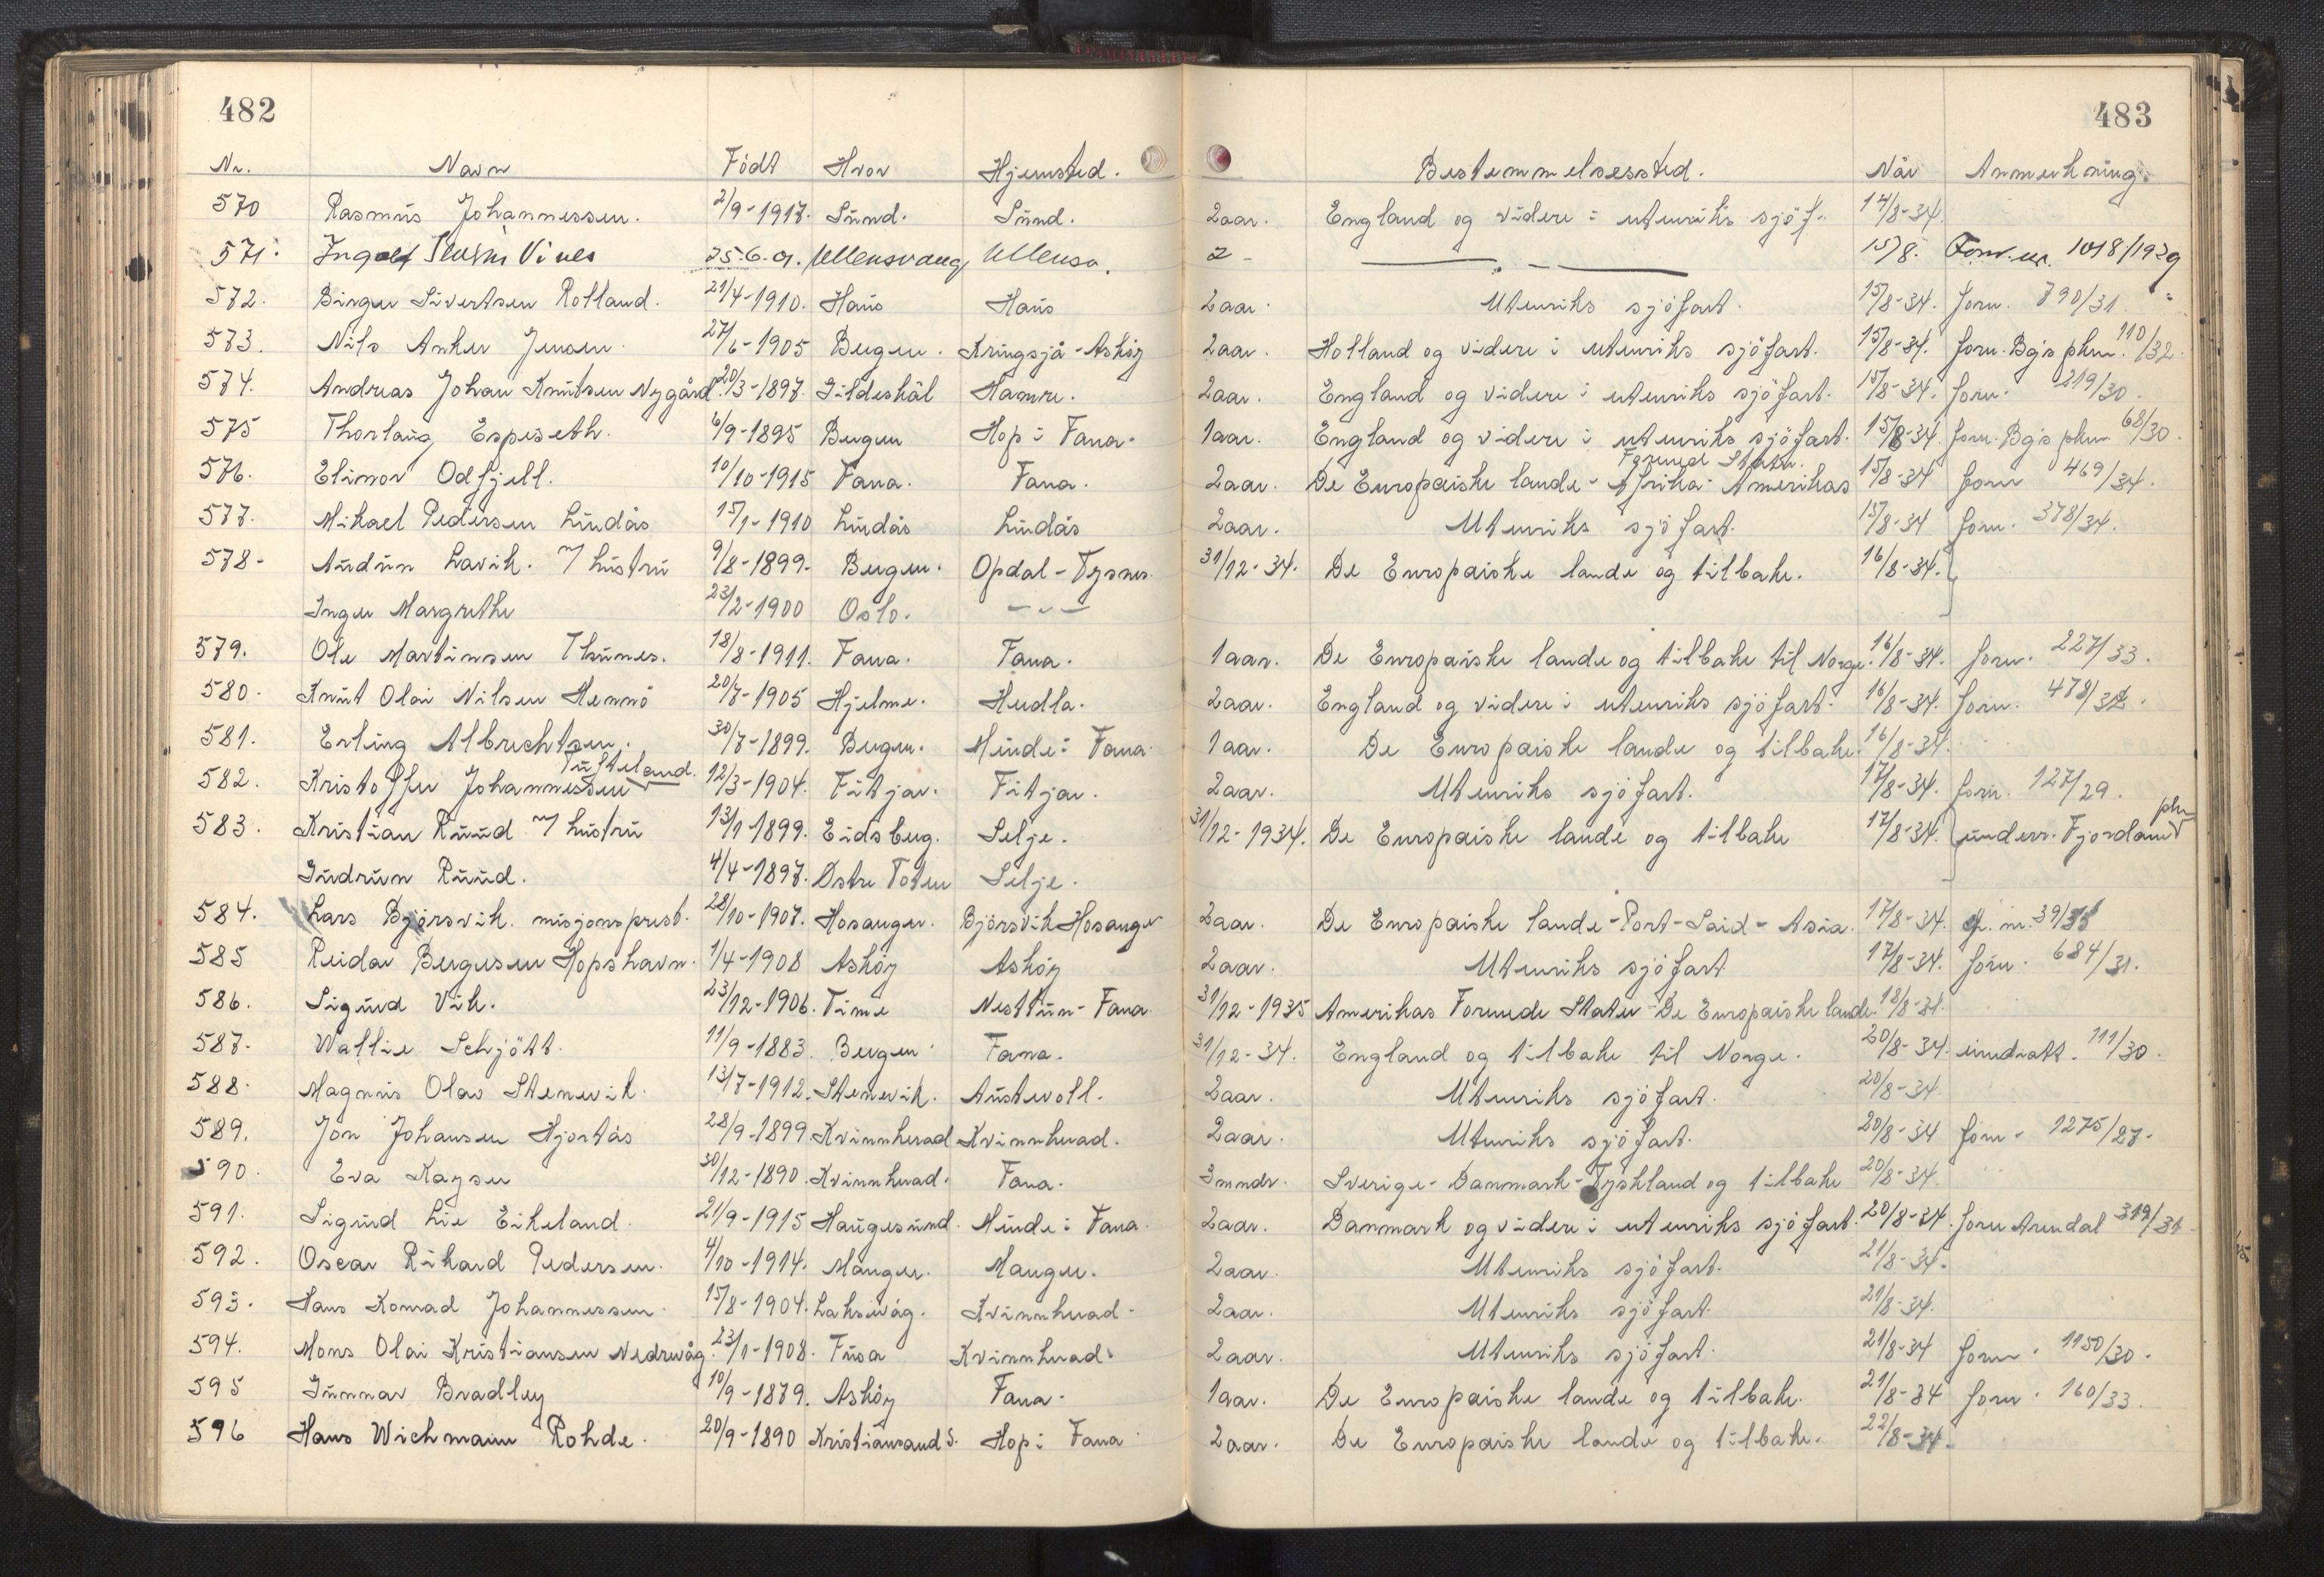 482
483
Nr. Navn Födt Hvor Hjemsted. Bestemmelsessted. Når Anmerkning.
570 Rasmus Johannessen. 2/9-1917. Sund. Sund. 2 aar. England og videre i utenriks sjöf. 14/8-34.
571. Ingolf Vines 25-6.01. Ullensvang Ullensv. 2 - — „ — 15/8. Forr. nr. 1018/1929
572. Birger Sivertsen Rolland. 21/4-1910. Haus Haus 2 aar. Utenriks sjöfart. 15/8-34. forn. 790/31.
573. Nils Anker Jensen. 27/6-1905 Bergen. Kringsjå-Asköy 2 aar. Holland og videre i utenriks sjöfart. 15/8-34. forn. Bg's pkm. 110/32.
574. Andreas Johan Knutsen Nygård. 20/3-1897. Gildeskål Hamre. 2 aar. England og videre i utenriks sjöfart. 15/8-34. forn. 219/30.
575 Thorlaug Espeseth. 6/9-1895 Bergen Hop i Fana. 1 aar. England og videre i utenriks sjöfart. 15/8-34. forn. Bg's pkm. 68/30.
Forenede Stater.
576. Elinor Odfjell. 10/10-1915 Fana. Fana. 2 aar. De Europæiske lande - Afrika - Amerikas 15/8-34 forn 469/34.
577. Mikael Pedersen Lindås 15/1-1910 Lindås Lindås 2 aar. Utenriks sjöfart. 15/8-34 forn. 378/34.
578- Audun Lavik. m/ hustru 9/8-1899. Bergen. Opdal-Tysnes. 31/12-34. De Europæiske lande og tilbake. 16/8-34.
Inger Margrethe 23/2-1900 Oslo. — „ —
579. Ole Martinsen Thunes. 18/8-1911. Fana. Fana. 1 aar. De Europæiske lande og tilbake til Norge. 16/8-34. forn. 227/33.
580. Knut Olai Nilsen Hennö 20/7-1905 Hjelme. Herdla. 2 aar. England og videre i utenriks sjöfart. 16/8-34. forn. 478/32.
581. Erling Albrechtsen. 30/7-1899. Bergen. Minde i Fana. 1 aar. De Europæiske lande og tilbake. 16/8-34.
Tufteland.
582. Kristoffer Johannessen 12/3-1904. Fitjar. Fitjar. 2 aar. Utenriks sjöfart. 17/8-34. forn. 127/29.
583. Kristian Ruud m/ hustru 13/1-1899. Eidsberg. Selje. 31/12-1934. De Europæiske lande og tilbake 17/8-34. underr. Fjordane pkm
Gudrun Ruud. 4/4-1897. Østre Toten Selje.
584. Lars Björsvik. misjonsprest. 28/10-1907. Hosanger. Björsvik Hosanger 2 aar. De Europæiske lande - Port-Said - Asia. 17/8-34. g. nr. 39/35
585 Reidar Bergesen Hopshavn. 1/4-1908 Asköy Asköy 2 aar. Utenriks sjöfart 17/8-34. forn. 684/31.
586. Sigurd Vik. 23/12-1906. Time Nesttun-Fana. 31/12-1935 Amerikas Forenede Stater - De Europæiske lande. 18/8-34.
587. Wallie Schjött. 11/9-1883. Bergen Fana. 31/12-34. England og tilbake til Norge. 20/8-34. inndratt. 111/30.
588. Magnus Olav Stenevik. 13/7-1912. Stenevik. Austevoll. 2 aar. Utenriks sjöfart. 20/8-34.
589. Jon Johansen Hjortås 28/9-1899. Kvinnherad Kvinnherad. 2 aar. Utenriks sjöfart. 20/8-34 forn. 1275/27.
590. Eva Kayser 30/12-1890. Kvinnherad. Fana. 3 mndr. Sverige - Danmark - Tyskland og tilbake 20/8-34.
591. Sigurd Lie Eikeland. 21/9-1915 Haugesund. Minde i Fana. 2 aar. Danmark og videre i utenriks sjöfart. 20/8-34. forn Arendal 319/31
592. Oscar Rikard Pedersen. 4/10-1914. Manger. Manger. 2 aar. Utenriks sjöfart. 21/8-34.
593. Hans Konrad Johannessen. 15/8-1904. Laksevåg. Kvinnherad. 2 aar. Utenriks sjöfart. 21/8-34.
594. Mons Olai Kristiansen Nedrevåg. 23/1-1908. Fusa Kvinnherad. 2 aar. Utenriks sjöfart. 21/8-34 forn. 1150/30.
595 Gunnar Bradley 10/9-1879. Asköy Fana. 1 aar. De Europæiske lande og tilbake. 21/8-34 forn. 160/33.
596 Hans Wichmann Rohde. 20/9-1890 Kristiansand S. Hop i Fana 2 aar. De Europæiske lande og tilbake. 22/8-34.